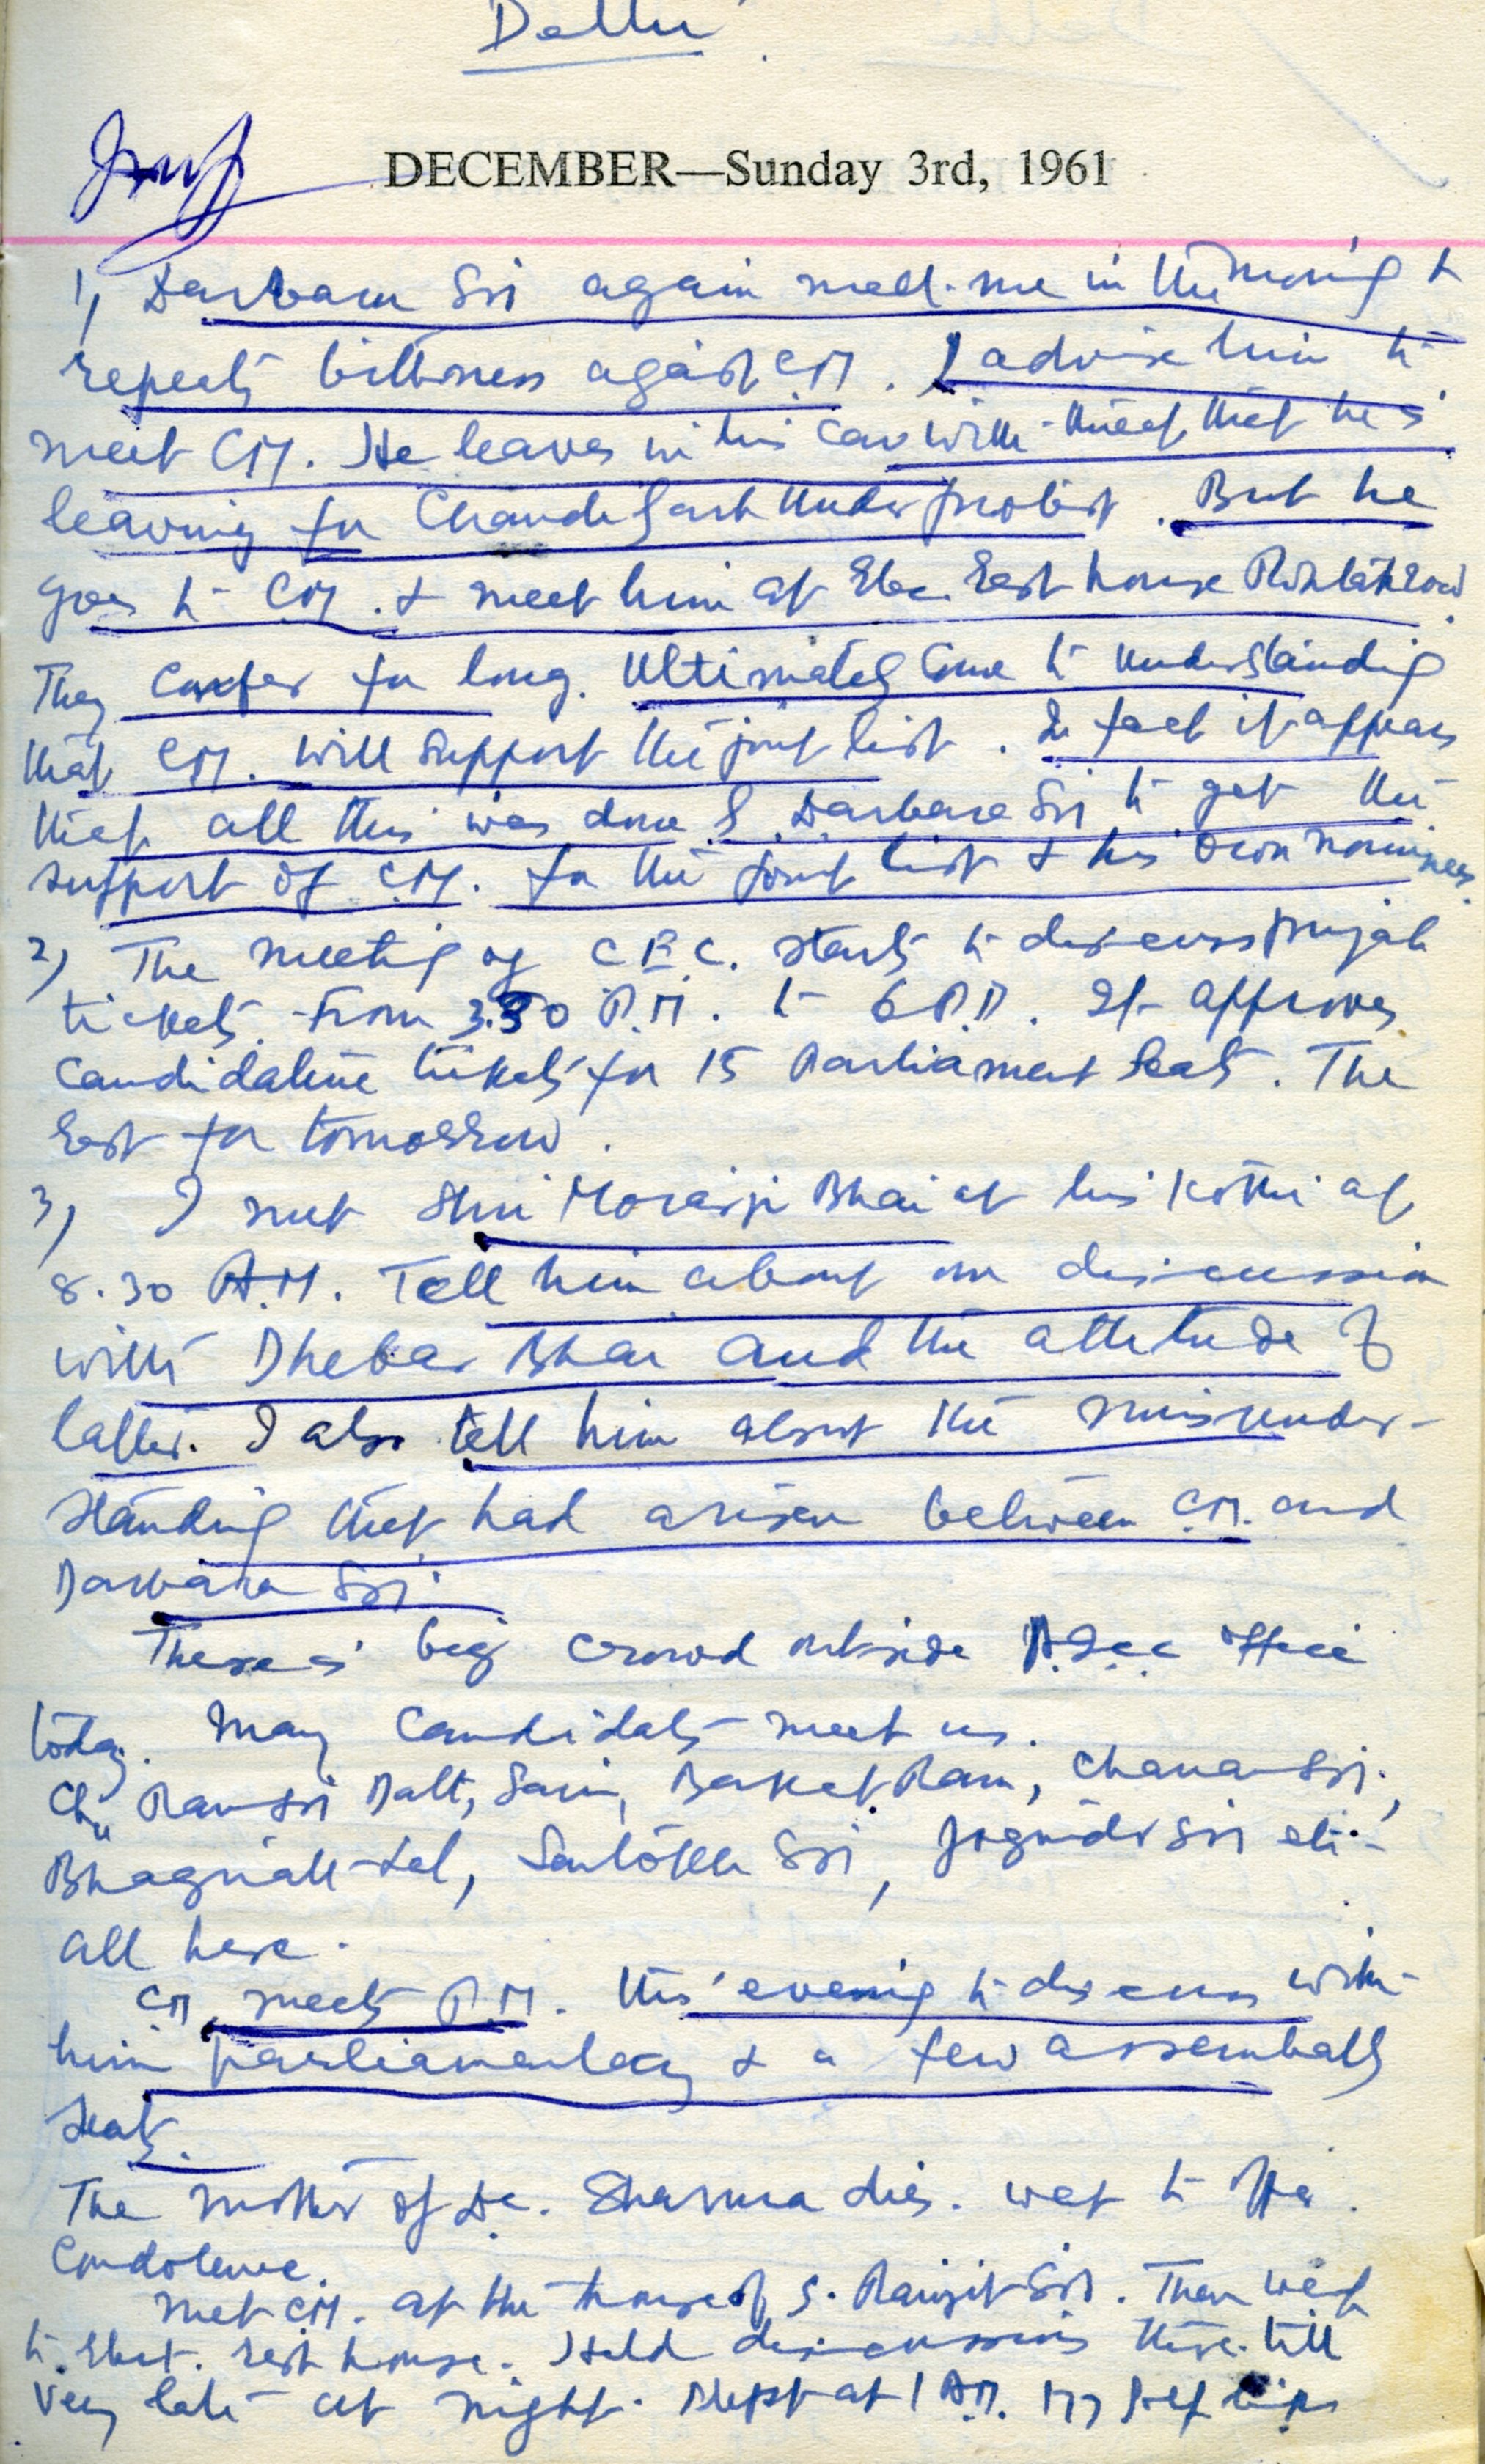 Delhi
DECEMBER—Sunday 3rd, 1961
1) Darbara Sn again meet me in the morning &
repeats bitterness against C.M. I advise him to
meet CM. He leaves in his car with threat that he is
leaving for Chandigarh under protest. But he
goes to CM. & meet him at Elec. Rest house Rohtak road.
They confer for long. Ultimately come to understanding
that CM. will support the joint list. In fact it appears
that all this was done by Darbara Sn to get the
support of CM. for the joint list & his own nominees.
2) The meeting of C.E.C. starts to discuss Punjab
tickets from 3.30 P.M. to 6 P.M. It approves
tickets for 15 Parliament Seats. The
rest for tomorrow.
3) I meet Shri Morarji Bhai at his Kothi at
8.30 A.M. Tell him about our discussion
with Dhebar Bhai and the attitude of
latter. I also tell him about the misunder-
standing that had arisen between C.M. and
Darbara Sn.
There is big crowd outside A.I.C.C office
today. Many candidats meet us.
Ch. Ran Sn Datt, Sain, Barkat Ram, Chanan Sn.,
Bhagirath Lal, Santokh Sn, Joginder Sn etc.
all here.
CM. meets P.M. this evening to discuss with
him parliamentary & a few assembally
seats.
The mother of Dr. Sharma dies. went to offer
Condolence.
Met CM. at the house of S. Ranjit Sn. Then went
to Elect. rest house. Held discussions there till
very late at night. Slept at 1 A.M. My